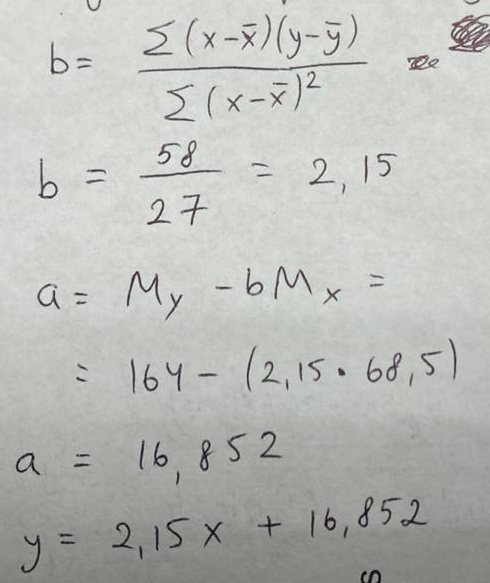 b = Σ(x-x̄)(y-ȳ) / Σ(x-x̄)²
b = 58 / 27 = 2,15
a = My - bMx =
= 164 - (2,15 · 68,5)
a = 16,852
y = 2,15x + 16,852